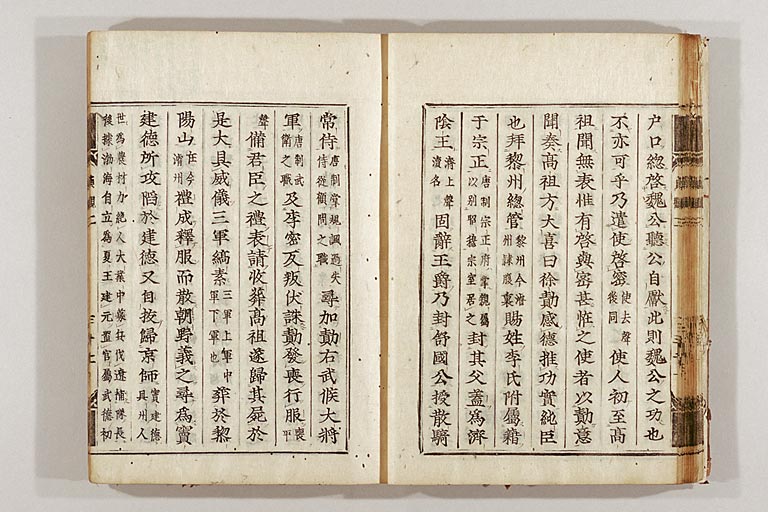 户口緫啓魏公聽公自獻此則魏公之功也
不亦可乎乃遣使啓密使去聲後同使人初至高
祖聞無表惟有啓與密甚恠之使者以勣意
聞奏高祖方大喜曰徐勣感德推功實純臣
也拜黎州緫管黎州今濬州隷賜姓李氏附屬籍
于宗正唐制宗正府掌親屬以別昭穆宗室居之封其父蓋為濟
陰王濟上聲瀆名固辭王爵乃封舒國公授散騎
常侍唐制掌規諷過失侍從顧問之職尋加勣右武候大將
軍唐制武衛之職及李密反叛伏誅勣發喪行服喪平
聲備君臣之禮表請收葬高祖遂歸其屍於
是大具威儀三軍縞素三軍上軍中軍下軍也葬於黎
陽山在今濬州禮成釋服而散朝野義之尋為竇
建德所攻陷於建德又自拔歸京師竇建德貝州人
世為農材力絶人大業中募兵伐遼補隊長
後據渤海自立為夏王建元置官屬武德初